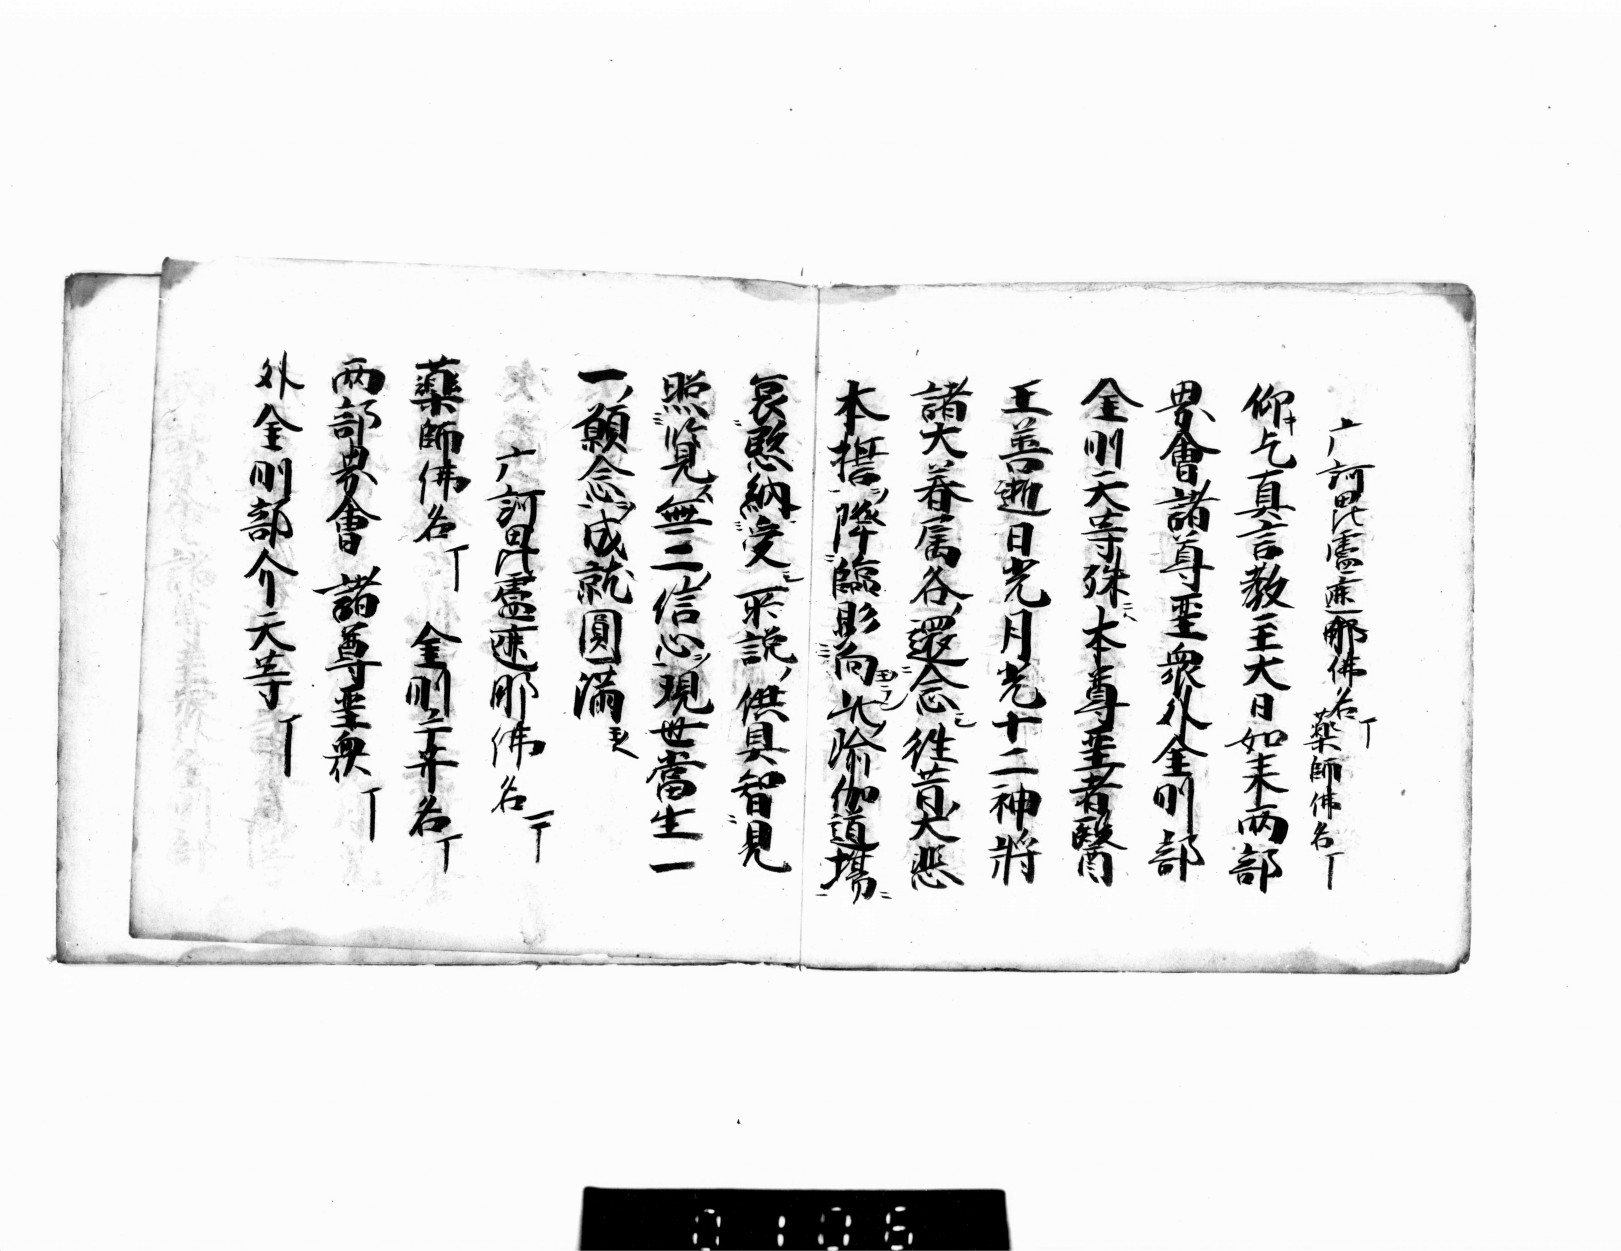 广訶毗盧遮那佛名丁 薬師佛名丁
仰乞真言教主大日如来両部
界會諸尊聖衆外金剛部
金剛天等殊本尊聖者醫
王善逝日光月光十二神將
諸大眷属各還念往昔大悲
本誓降臨影向此瑜伽道場
哀愍納受所説供具智見
照覧無二信心現世當生一
一願念成就圓満
广訶毗盧遮那佛名丁
薬師佛名丁 金剛手菩名丁
両部界會諸尊聖衆丁
外金剛部介天等丁
0106